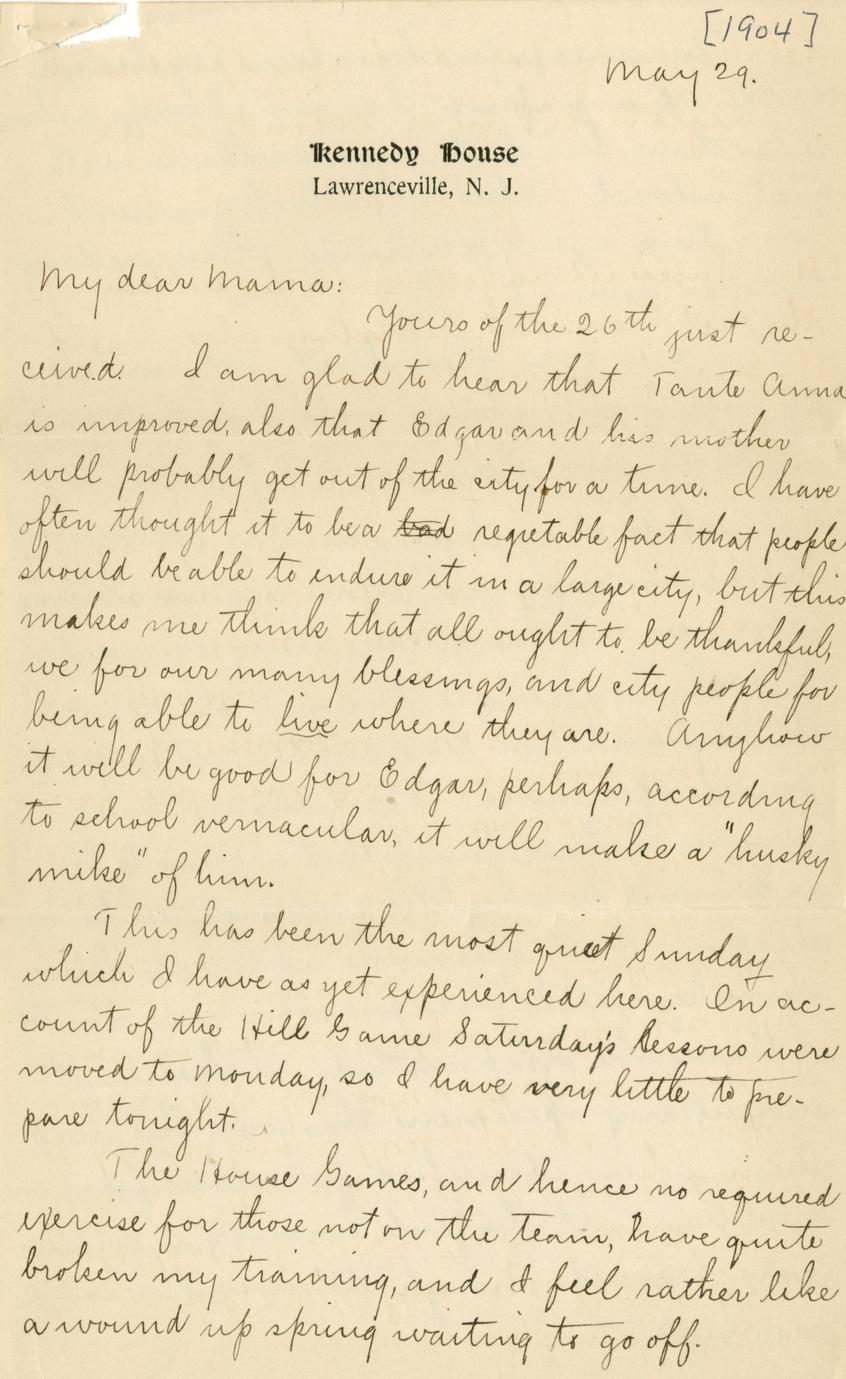 [1904]
May 29.
Kennedy House
Lawrenceville, N. J.
My dear Mama:
Yours of the 26th just re-
ceived. I am glad to hear that Tante Anna
is improved, also that Edgar and his mother
will probably get out of the city for a time. I have
often thought it to be a bad regretable fact that people
should be able to endure it in a large city, but this
makes me think that all ought to be thankful,
we for our many blessings, and city people for
being able to live where they are. Anyhow
it will be good for Edgar, perhaps, according
to school vernacular, it will make a "husky
mike" of him.
This has been the most quiet Sunday
which I have as yet experienced here. On ac-
count of the Hill Game Saturday's lessons were
moved to Monday, so I have very little to pre-
pare tonight.
The House Games, and hence no required
exercise for those not on the team, have quite
broken my training, and I feel rather like
a wound up spring waiting to go off.